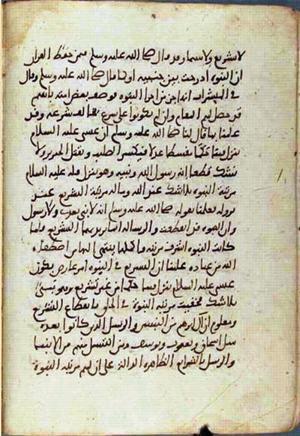 لا بتشريع ولا سماه وقد قال صلى الله عليه وسلم فمن حفظ القرآن
ان النبوة ادرجت بين جنبيه او كما قال صلى الله عليه وسلم وقال
في المبشرات انها جزء من اجزاء النبوة فوصف بعض امته بانهم
قد حصل لهم المقام وان لم يكونوا على شرع يخالف شرعه وقد
علمنا بما قال لنا صلى الله عليه وسلم ان عيسى عليه السلام
ينزل فينا حكما مقسطا عدلا فيكسر الصليب ويقتل الخنزير ولا
نشك قطعا انه رسول الله ونبيه وهو ينزل فله عليه السلام
مرتبة النبوة بلا شك عند الله وما له مرتبة التشريع عند
نزوله فعلمنا بقوله صلى الله عليه وسلم انه لا نبي بعدي ولا رسول
وان النبوة قد انقطعت والرسالة انما يريد بهما التشريع فلما
كانت النبوة اشرف مرتبة واكملها ينتهي اليها من اصطفاه
الله من عباده علمنا ان التشريع في النبوة امر عارض بكون
عيسى عليه السلام ينزل فينا حكما من غير تشريع وهو نبي
بلا شك فخفيت مرتبة النبوة في الخلق بانقطاع التشريع
ومعلوم ان آل ابرهيم من النبيين والرسل الذين كانوا بعده
مثل اسحاق ويعقوب ويوسف ومن انتسل منهم من الانبيا
والرسل بالشرايع الظاهرة الدالة على ان لهم مرتبة النبوة